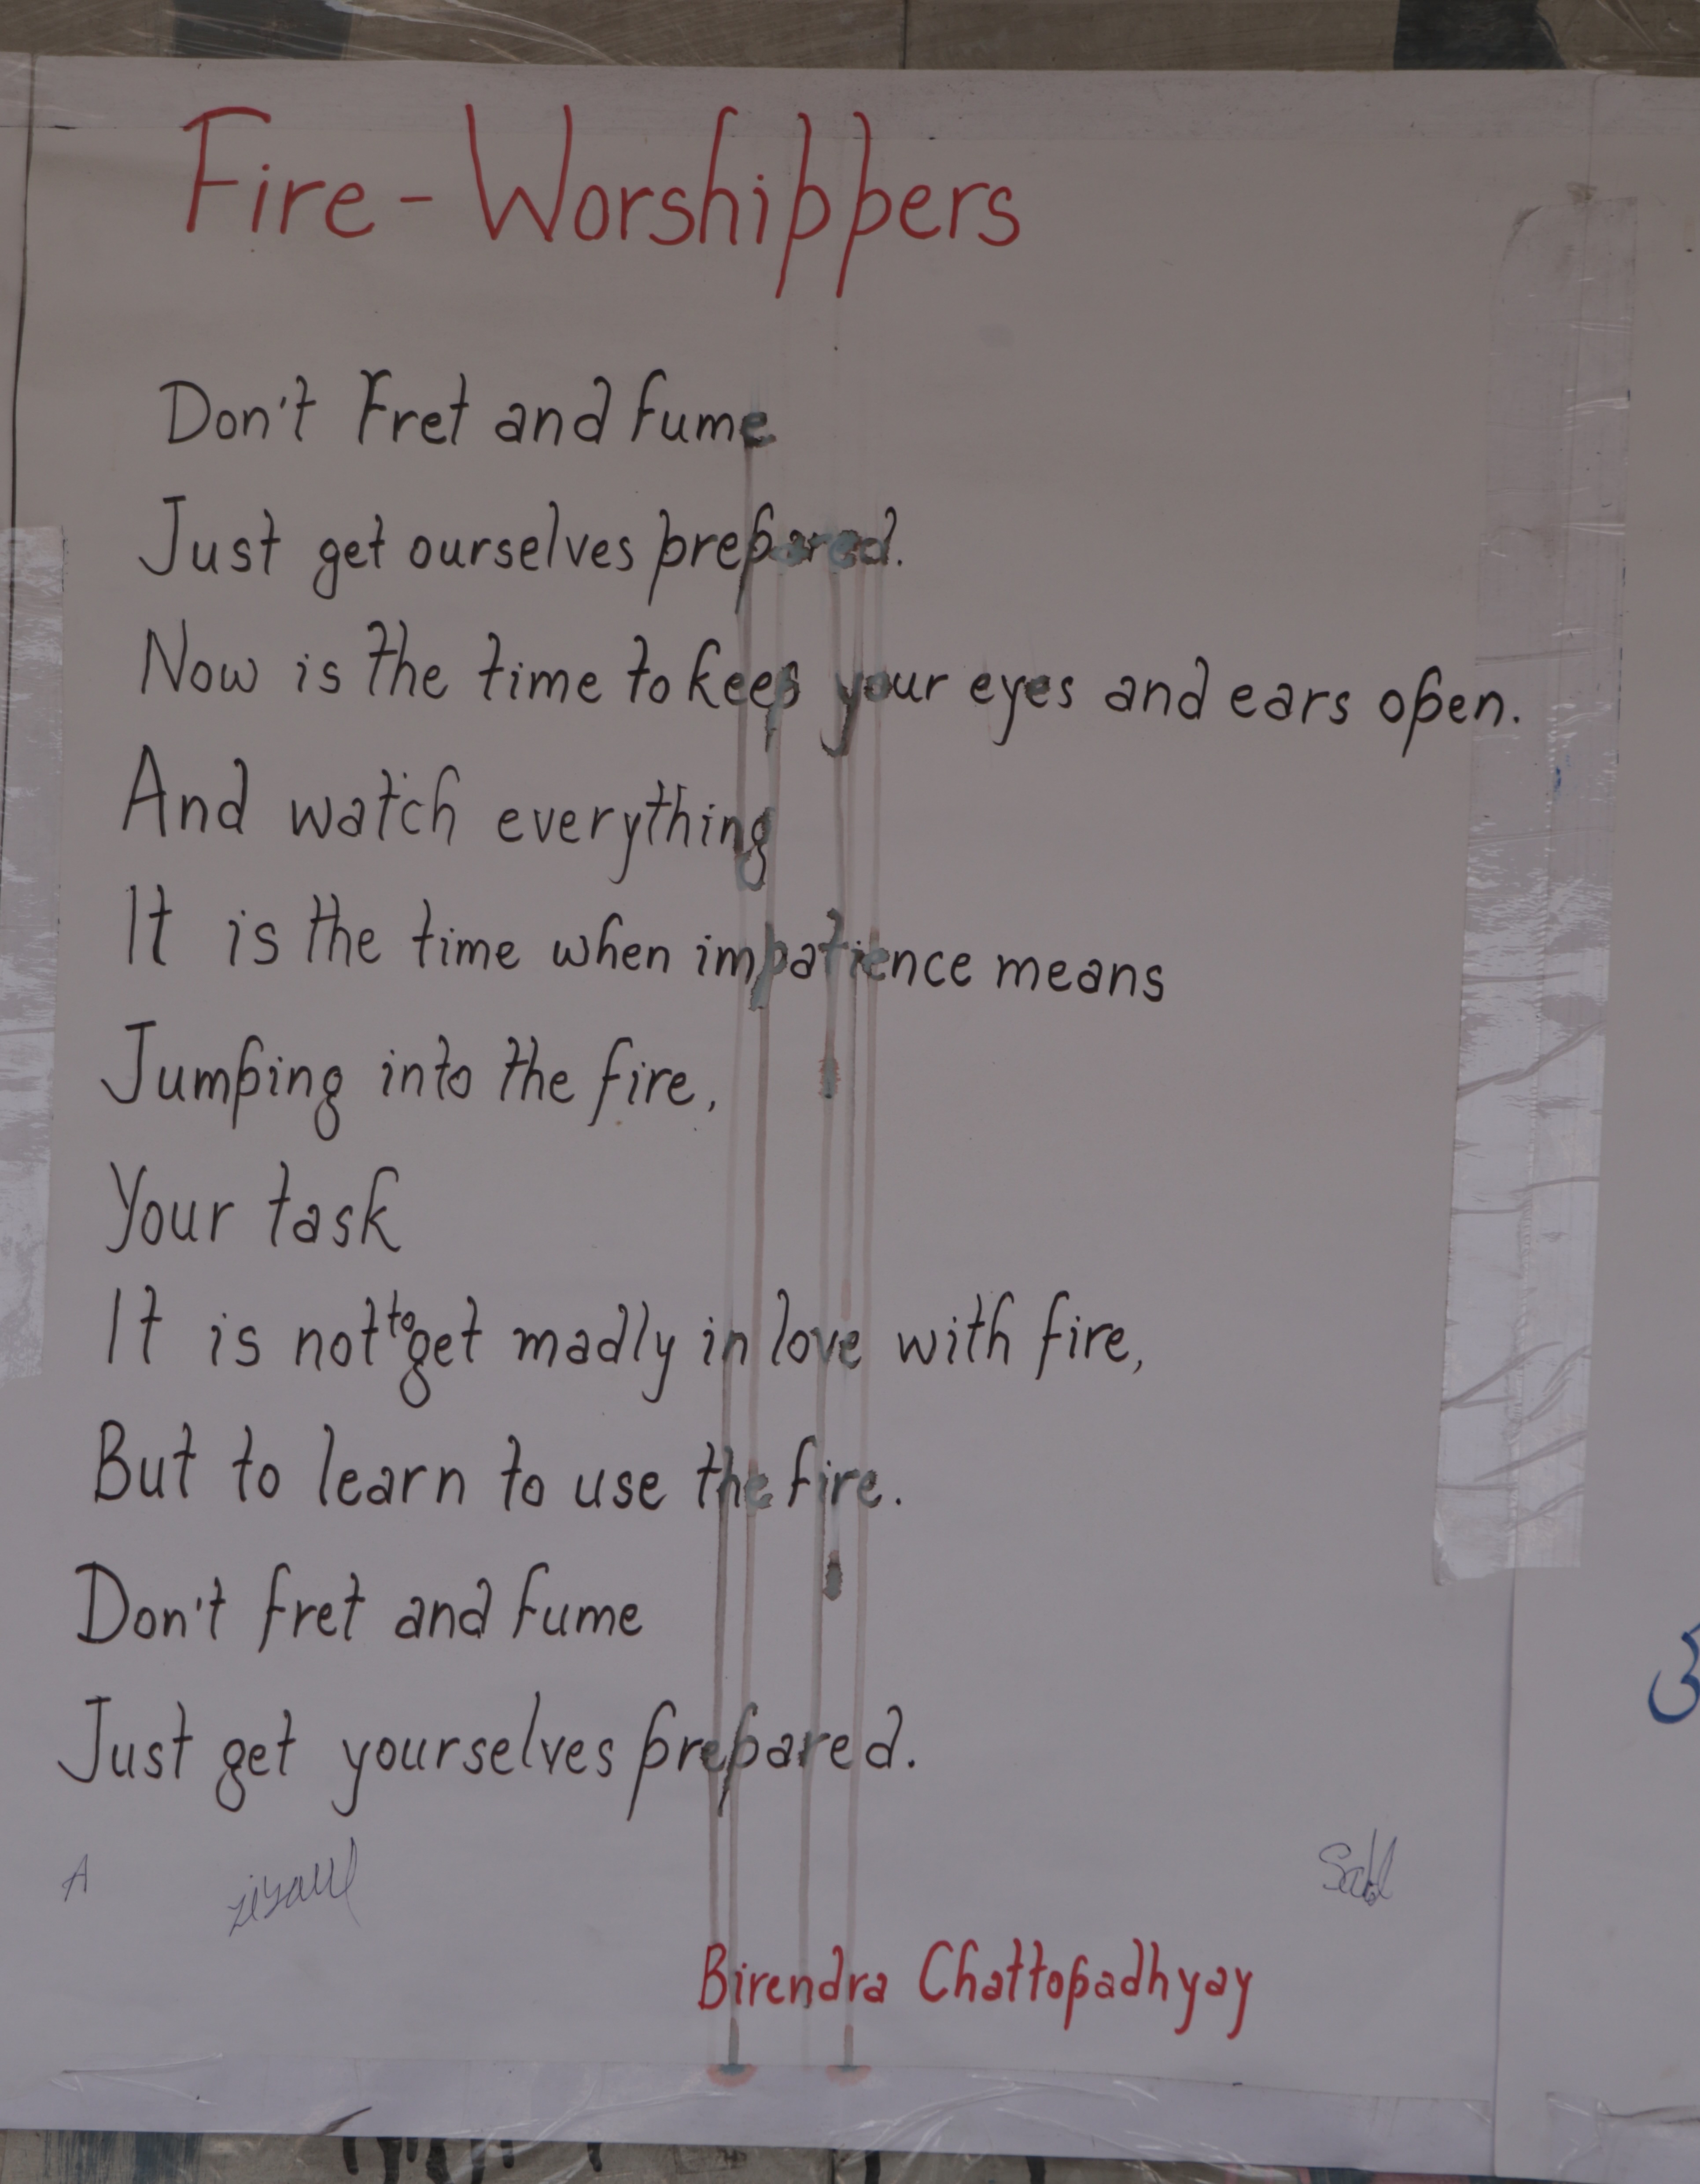 Fire-Worshippers
Don't Fret and fume
Just get ourselves prepared.
Now is the time to keep your eyes and ears open.
And watch everything
It is the time when impatience means
Jumping into the fire,
Your task
It is not to get madly in love with fire,
But to learn to use the fire.
Don't fret and fume
Just get yourselves prepared.
A
Birendra Chattopadhyay